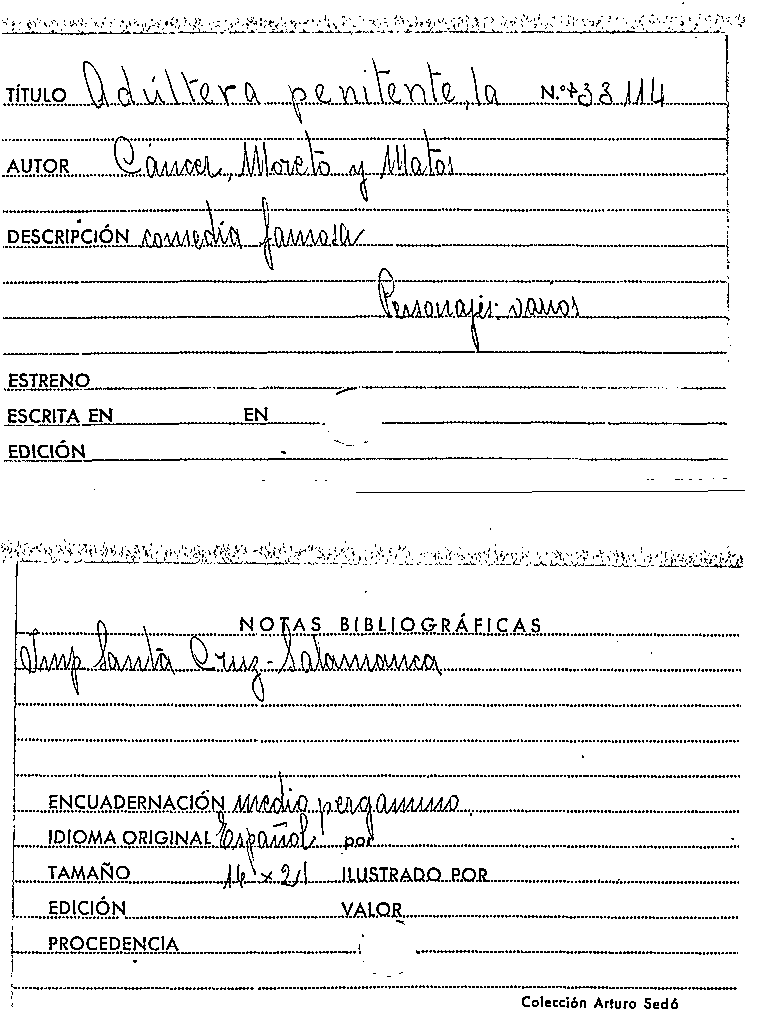 TÍTULO Adúltera penitente, la N.º 33114
AUTOR Cáncer, Moreto y Matos
DESCRIPCIÓN comedia famosa
Personajes: varios
ESTRENO
ESCRITA EN EN
EDICIÓN
NOTAS BIBLIOGRÁFICAS
Imp Santa Cruz - Salamanca
ENCUADERNACIÓN medio pergamino
IDIOMA ORIGINAL Español por
TAMAÑO 14 x 21 ILUSTRADO POR
EDICIÓN VALOR
PROCEDENCIA
Colección Arturo Sedó